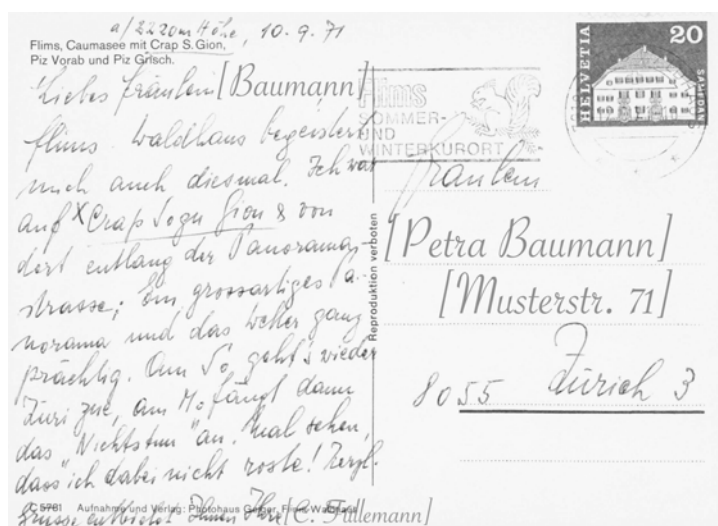 a/2220m Höhe, 10.9.71
Flims, Caumasee mit Crap S. Gion,
Piz Vorab und Piz Grisch.
Liebes Fräulein [Baumann]
Flims Waldhaus begeistert
mich auch diesmal. Ich war
auf X Crap Sogn Gion & von
dort entlang der Panorama-
strasse; Ein grossartiges Pa-
norama und das Wetter ganz
prächtig. Am So. geht's wieder
Züri zue, am Mo fängt dann
das "Nichtstun" an. Mal sehen,
dass ich dabei nicht roste! Herzl.
Grüsse entbietet Ihnen Ihre [C. Tillemann]
C 5761 Aufnahme und Verlag: Photohaus Geiger, Flims-Waldhaus
Reproduktion verboten
Flims
SOMMER-
UND
WINTERKURORT
HELVETIA
20
SAMEDAN
Fräulein
[Petra Baumann]
[Musterstr. 71]
8055 Zürich 3